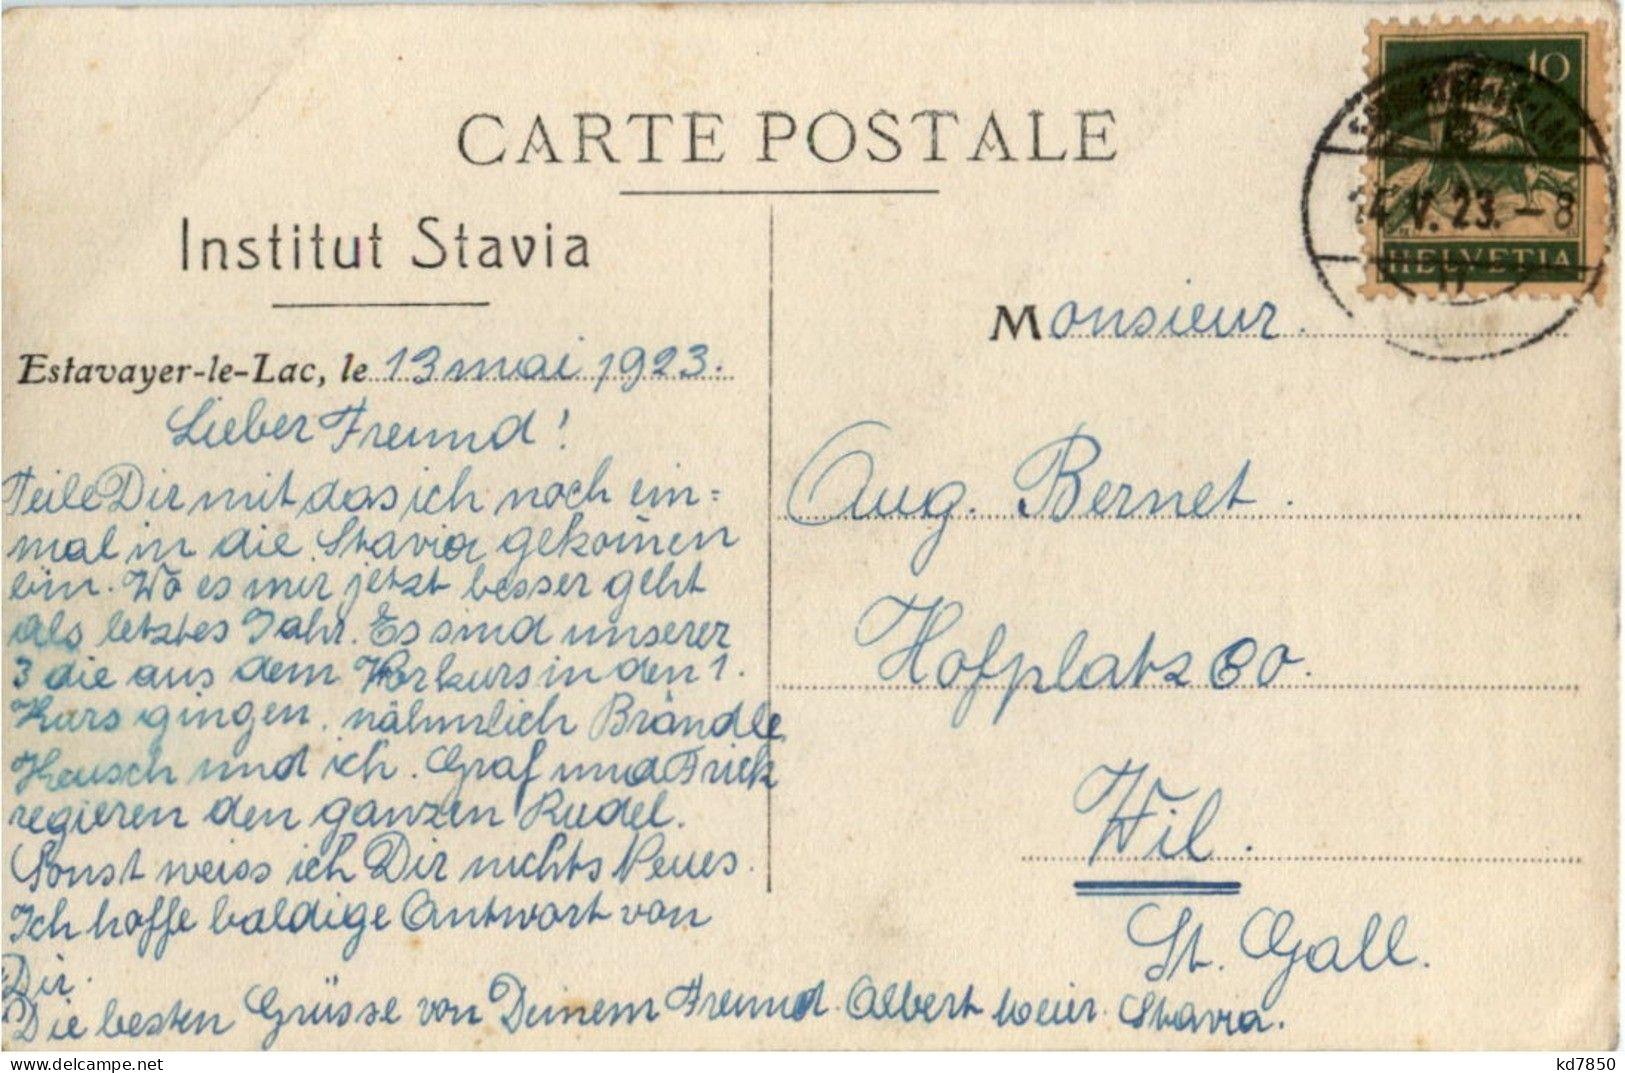 CARTE POSTALE
Institut Stavia
Estavayer-le-Lac, le 13 mai 1923.
Lieber Freund!
Teile Dir mit das ich noch ein=
mal in die Stavia gekom̄en
bin. Wo es mir jetzt besser geht
als letztes Jahr. Es sind unserer
3 die aus dem Vorkurs in den 1.
Kurs gingen. nähmlich Brändle
Hausch und ich. Graf und Frick
regieren den ganzen Rudel.
Sonst weiss ich Dir nichts Neues.
Ich hoffe baldige Antwort von
Dir.
Die besten Grüsse von Deinem Freund Albert Weier. Stavia.
10
14.V.23.-8
HELVETIA
Monsieur.
Aug. Bernet.
Hofplatz 60.
Wil.
St. Gall.
kd7850